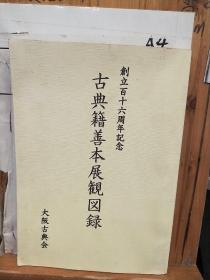 創立百十六周年記念
古典籍善本展観図録
大阪古典会
A4